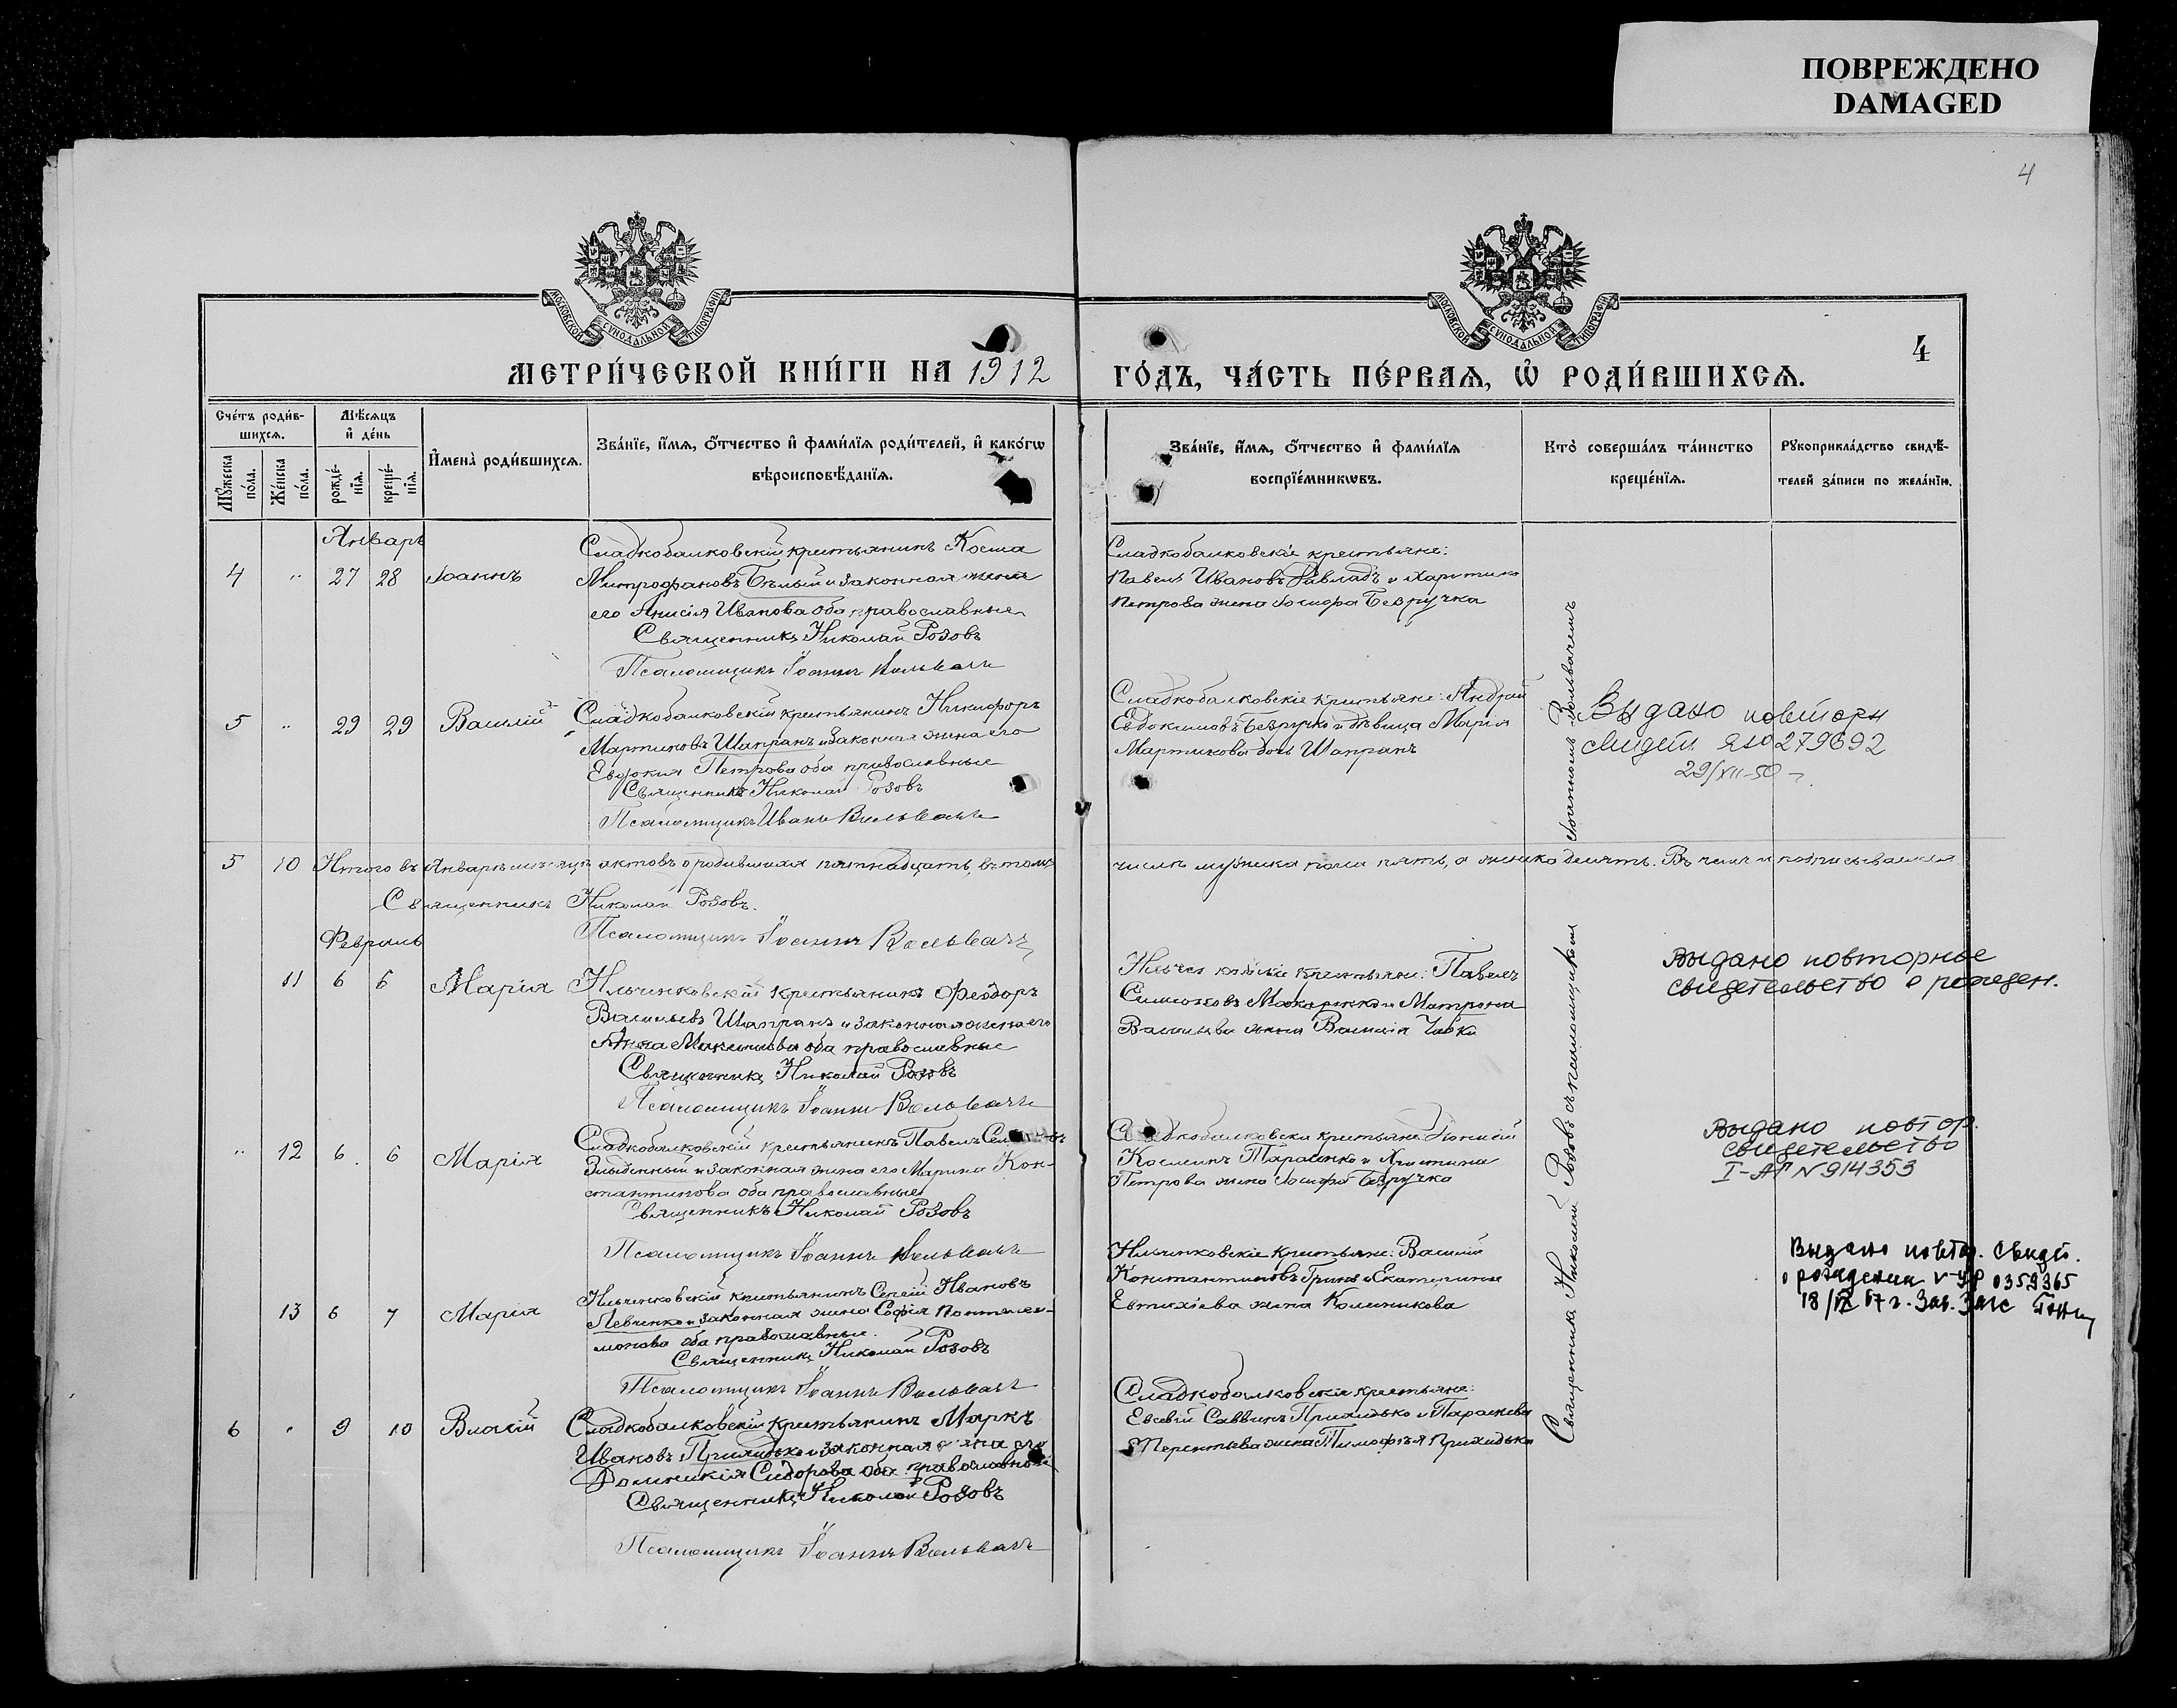 ПОВРЕЖДЕНО
DAMAGED
4
МОСКОВСКОЙ СѴНОДАЛЬНОЙ ТИПОГРАФІИ
МОСКОВСКОЙ СѴНОДАЛЬНОЙ ТИПОГРАФІИ
МЕТРИ́ЧЕСКОЙ КНИ́ГИ НА 1912
ГО́ДЪ, ЧА́СТЬ ПЕ́РВАЯ, Ѡ҆ РОДИ́ВШИХСЯ.
4
Сче́тъ роди́в-
шихся.
Мѣ́сяцъ
и҆ де́нь
Мꙋ́жеска
по́ла.
Же́нска
по́ла.
рожде́-
нїя.
креще́-
нїя.
И҆мена̀ роди́вшихся.
Зва́нїе, и҆́мя, ѻ҆́тчество и҆ фами́лїя роди́телей, и҆ како́гѡ
вѣроисповѣ́данїя.
Зва́нїе, и҆́мя, ѻ҆́тчество и҆ фами́лїя
воспрїе́мникѡвъ.
Кто̀ соверша́лъ та́инство
креще́нїя.
Рꙋкоприкла́дство свидѣ́-
телей за́писи по жела́нїю.
Январь
4 " 27 28 Іоаннъ
Сладкобалковскій крестьянинъ Косма
Митрофановъ Бѣлый и законная жена
его Анисія Иванова оба православные
Священникъ Николай Розовъ
Псаломщикъ Іоаннъ Вольвачъ
Сладкобалковскіе крестьяне:
Павелъ Ивановъ и
Петрова жена Іосифа Безручка
5 " 29 29 Василій
Сладкобалковскій крестьянинъ Никифоръ
Мартиновъ Шапранъ и законная жена его
Евдокія Петрова оба православные
Священникъ Николай Розовъ
Псаломщикъ Иванъ Вольвачъ
Сладкобалковскіе крестьяне: Андрей
Евдокимовъ Безручко и дѣвица Марія
Мартинова дочь Шапранъ
Выдано повторн
свидет ЯЮ 279692
29/XII-50
5 10 Итого въ Январѣ мѣсяцѣ актовъ о родившихся пятнадцать, въ томъ
числѣ мужеска пола пять, а женска десять. Въ чемъ и подписываемся
Священникъ Николай Розовъ.
Псаломщикъ Іоаннъ Вольвачъ
Февраль
11 6 6 Марія
Ильченковскій крестьянинъ Феодоръ
Васильевъ Шапранъ и законная жена его
Анна Максимова оба православные
Священникъ Николай Розовъ
Псаломщикъ Іоаннъ Вольвачъ
крестьяне: Павелъ
Симеоновъ Макаренко и Матрона
Васильева жена Василія
Выдано повторное
свидетельство о рожден.
" 12 6 6 Марія
Сладкобалковскій крестьянинъ Павелъ
и законная жена его Марина Кон-
стантинова оба православные
Священникъ Николай Розовъ
Псаломщикъ Іоаннъ Вольвачъ
крестьяне:
Космынъ Тарасенко и Христина
Петрова жена Іосифа Безручка
Выдано повтор.
свидетельство
I-АР N 914353
13 6 7 Марія
Ильченковскій крестьянинъ Сергій Ивановъ
Левченко и законная жена Софія Пантелеи-
монова оба православные.
Священникъ Николай Розовъ
Псаломщикъ Іоаннъ Вольвачъ
Ильченковскіе крестьяне: Василій
Константиновъ Гринь и Екатерина
Евтихіева жена Колесникова
Выдано повтор. свидет.
о рождении V-УР 0359365
18/IX 67 г. Зав. Загс
6 " 9 10 Власій
Сладкобалковскій крестьянинъ Маркъ
Ивановъ Приходько и законная жена его
Домникія Сидорова оба православные
Священникъ Николай Розовъ
Псаломщикъ Іоаннъ Вольвачъ
Сладкобалковскіе крестьяне:
Евсевій Саввинъ Приходько и Параскева
Терентьева жена Тимофея Приходька
Священникъ Николай Розовъ съ псаломщикомъ Іоанномъ Вольвачемъ